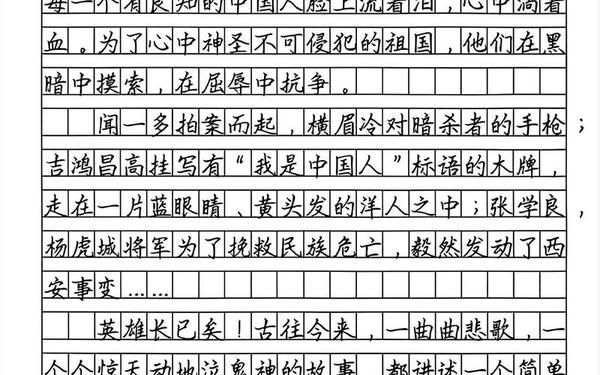 每一个有良知的中国人脸上流着泪，心中淌着
血。为了心中神圣不可侵犯的祖国，他们在黑
暗中摸索，在屈辱中抗争。
闻一多拍案而起，横眉冷对暗杀者的手枪；
吉鸿昌高挂写有“我是中国人”标语的木牌，
走在一片蓝眼睛、黄头发的洋人之中；张学良，
杨虎城将军为了挽救民族危亡，毅然发动了西
安事变……
英雄长已矣！古往今来，一曲曲悲歌，一
个个惊天动地泣鬼神的故事，都讲述一个简单